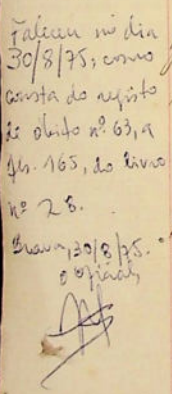 Faleceu no dia
30/8/75, como
consta do registo
de obito nº 63, a
fls. 165, do livro
nº 28.
Brava, 30/8/75.
O Oficial,